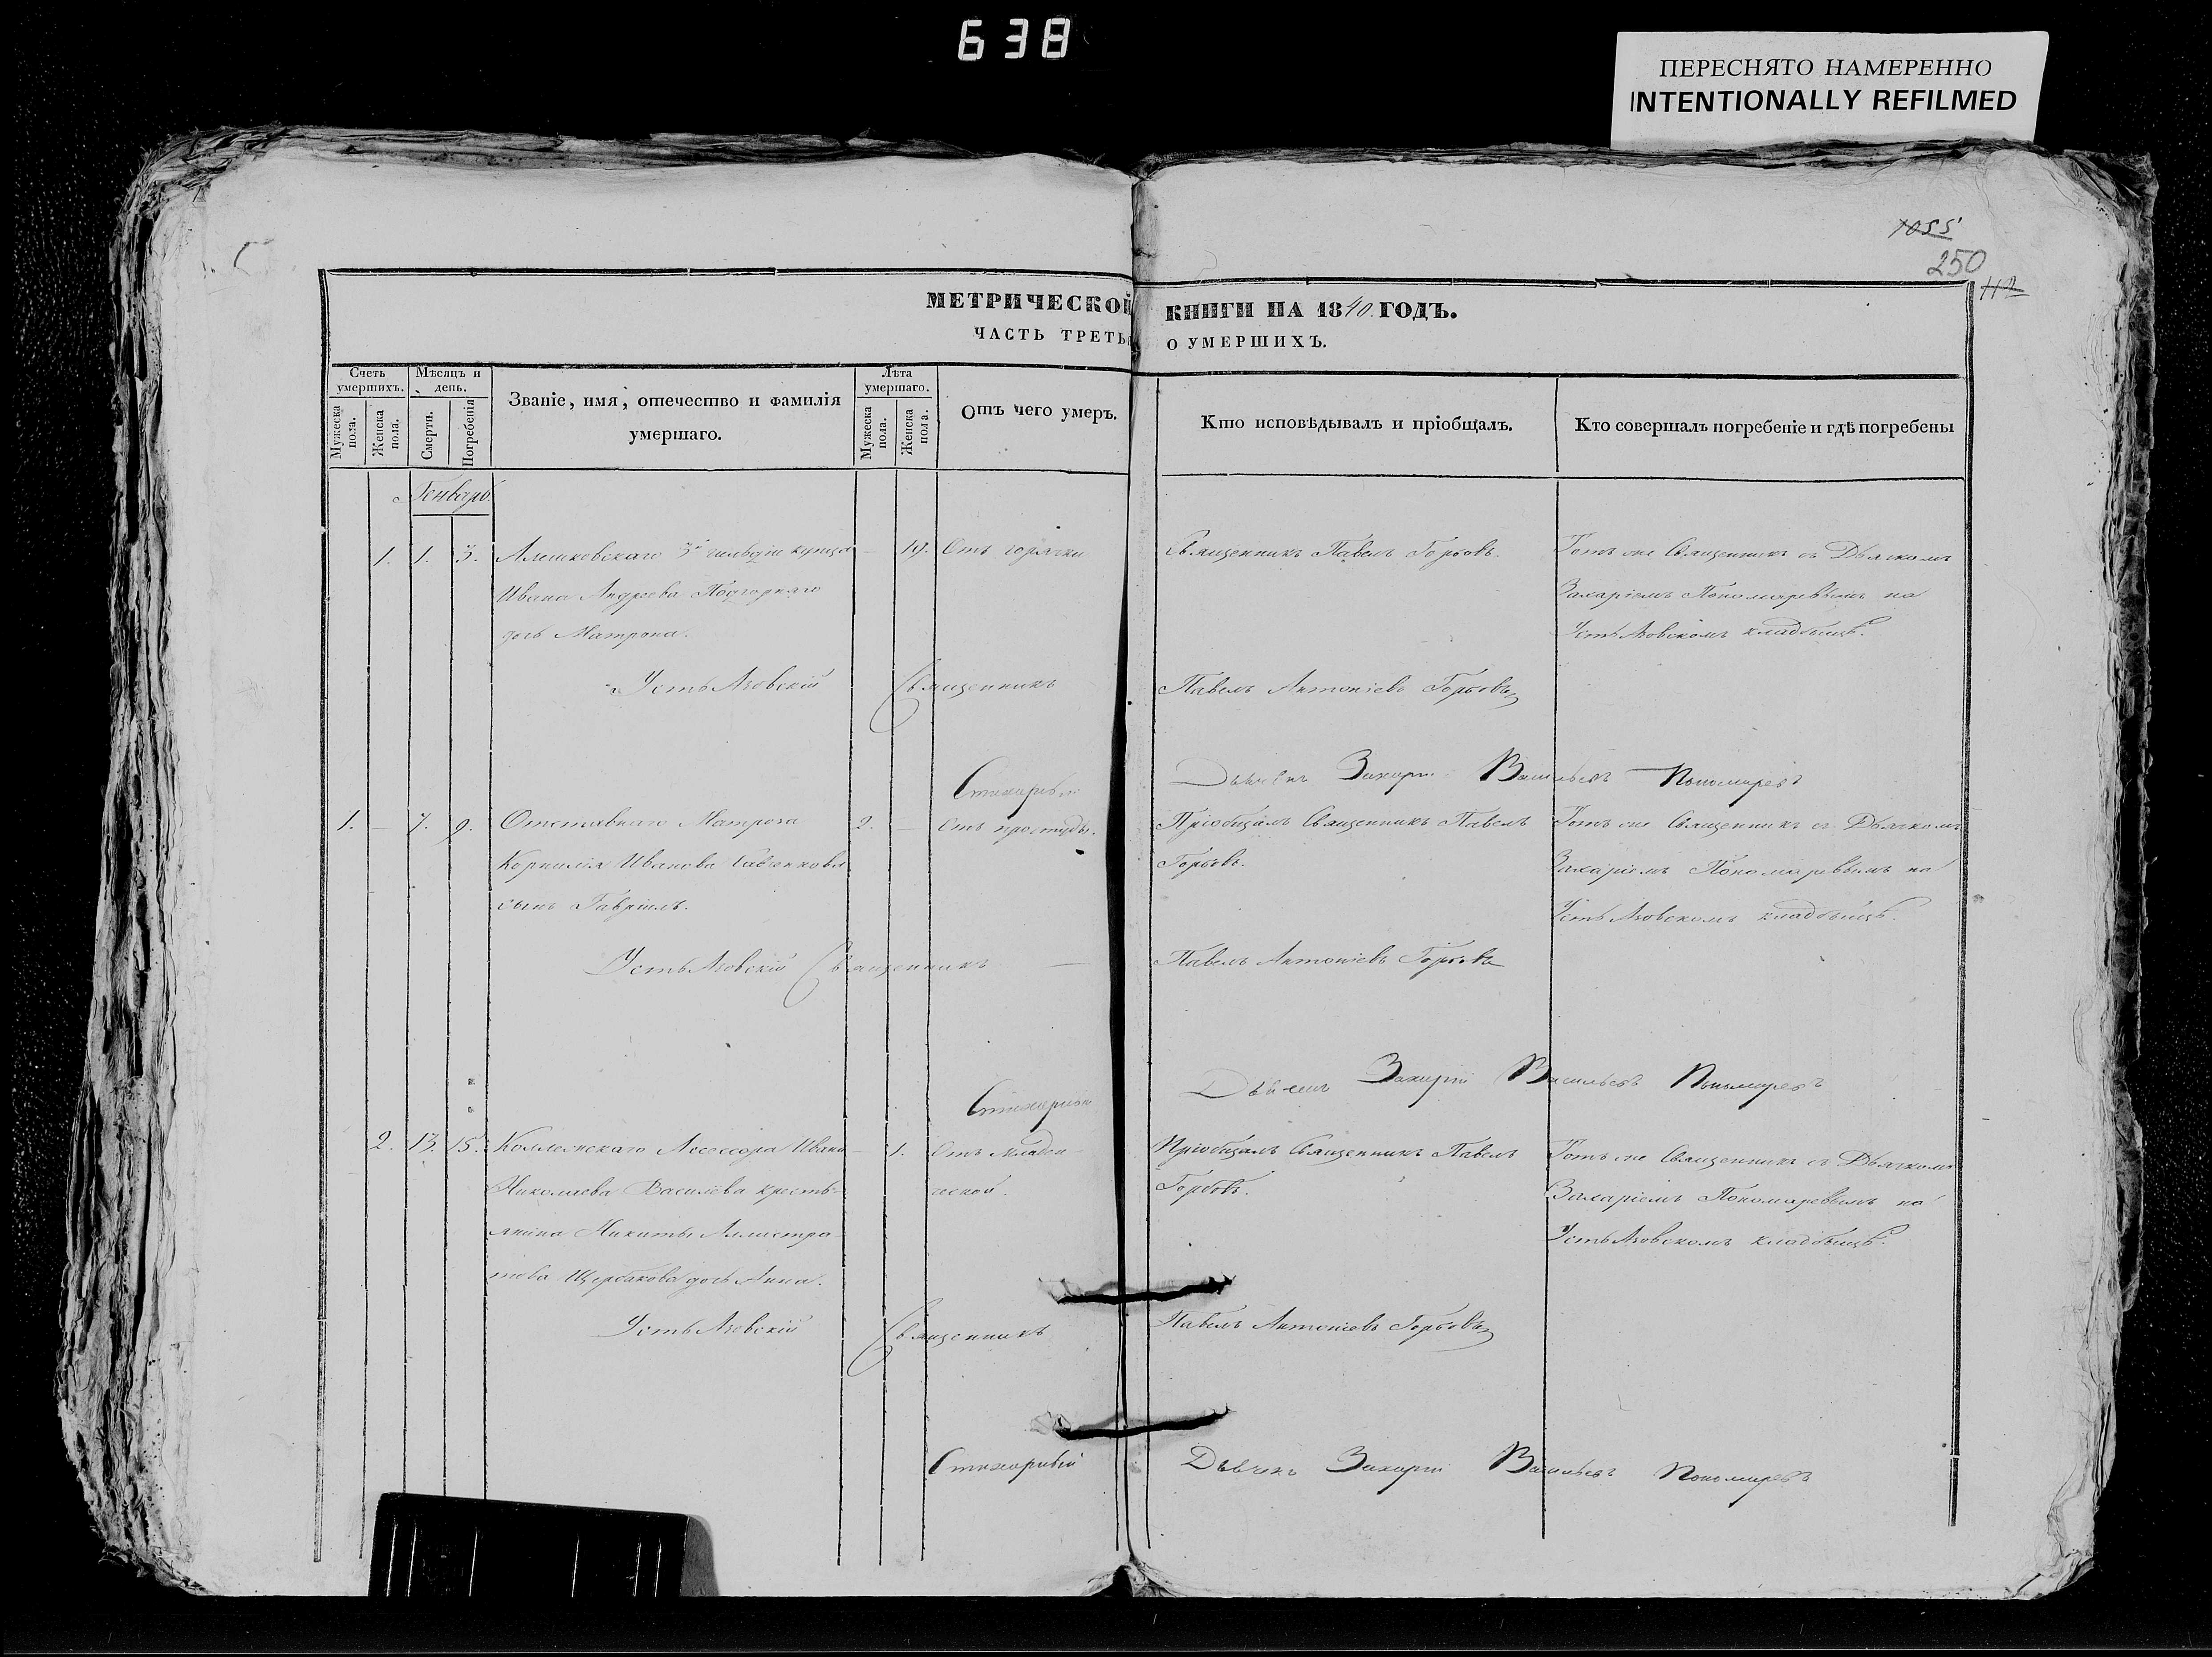 638
ПЕРЕСНЯТО НАМЕРЕННО
INTENTIONALLY REFILMED
1055
250
112
МЕТРИЧЕСКОЙ КНИГИ НА 1840 ГОДЪ.
ЧАСТЬ ТРЕТЬ О УМЕРШИХЪ.
Счетъ умершихъ.
Мужеска пола.
Женска пола.
Мѣсяцъ и день.
Смерти.
Погребенія
Званіе, имя, отечество и фамилія умершаго.
Лѣта умершаго.
Мужеска пола.
Женска пола.
Отъ чего умеръ.
Кто исповѣдывалъ и пріобщалъ.
Кто совершалъ погребеніе и гдѣ погребены
Генварь
1. 1. 3. Алешковскаго 3й гильдіи купца 19. Отъ горячки Священникъ Павелъ Горбовъ. Тотъ же Священникъ съ Дьячкомъ
Ивана Андреева Подгорнаго Захаріемъ Пономаревымъ на
дочь Матрона. Усть Азовскомъ кладбищѣ.
Усть Азовскій Священникъ Павелъ Антоніевъ Горбовъ
Стихарный Дьячекъ Захарій Васильевъ Пономаревъ
1. 7. 9. Отставнаго Матроза 2. Отъ простуды. Пріобщалъ Священникъ Павелъ Тотъ же Священникъ съ Дьячкомъ
Корнилія Иванова Горбовъ. Захаріемъ Пономаревымъ на
сынъ Гавріилъ. Усть Азовскомъ кладбищѣ.
Усть Азовскій Священникъ Павелъ Антоніевъ Горбовъ
Стихарный Дьячекъ Захарій Васильевъ Пономаревъ
2. 13. 15. Коллежскаго Ассесора Ивана 1. Отъ младен Пріобщалъ Священникъ Павелъ Тотъ же Священникъ съ Дьячкомъ
Николаева Василева кресть- ческой. Горбовъ. Захаріемъ Пономаревымъ на
янина Никиты Усть Азовскомъ кладбищѣ.
Щербакова дочь Анна.
Усть Азовскій Священникъ Павелъ Антоніевъ Горбовъ
Стихарный Дьячекъ Захарій Васильевъ Пономаревъ